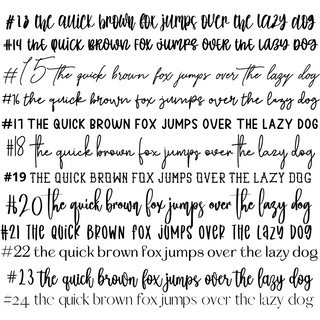 #13 the quick brown fox jumps over the lazy dog
#14 the quick brown fox jumps over the lazy dog
#15 the quick brown fox jumps over the lazy dog
#16 the quick brown fox jumps over the lazy dog
#17 THE QUICK BROWN FOX JUMPS OVER THE LAZY DOG
#18 the quick brown fox jumps over the lazy dog
#19 THE QUICK BROWN FOX JUMPS OVER THE LAZY DOG
#20 the quick brown fox jumps over the lazy dog
#21 THE QUICK BROWN FOX JUMPS OVER THE LAZY DOG
#22 the quick brown fox jumps over the lazy dog
#23 the quick brown fox jumps over the lazy dog
#24 the quick brown fox jumps over the lazy dog